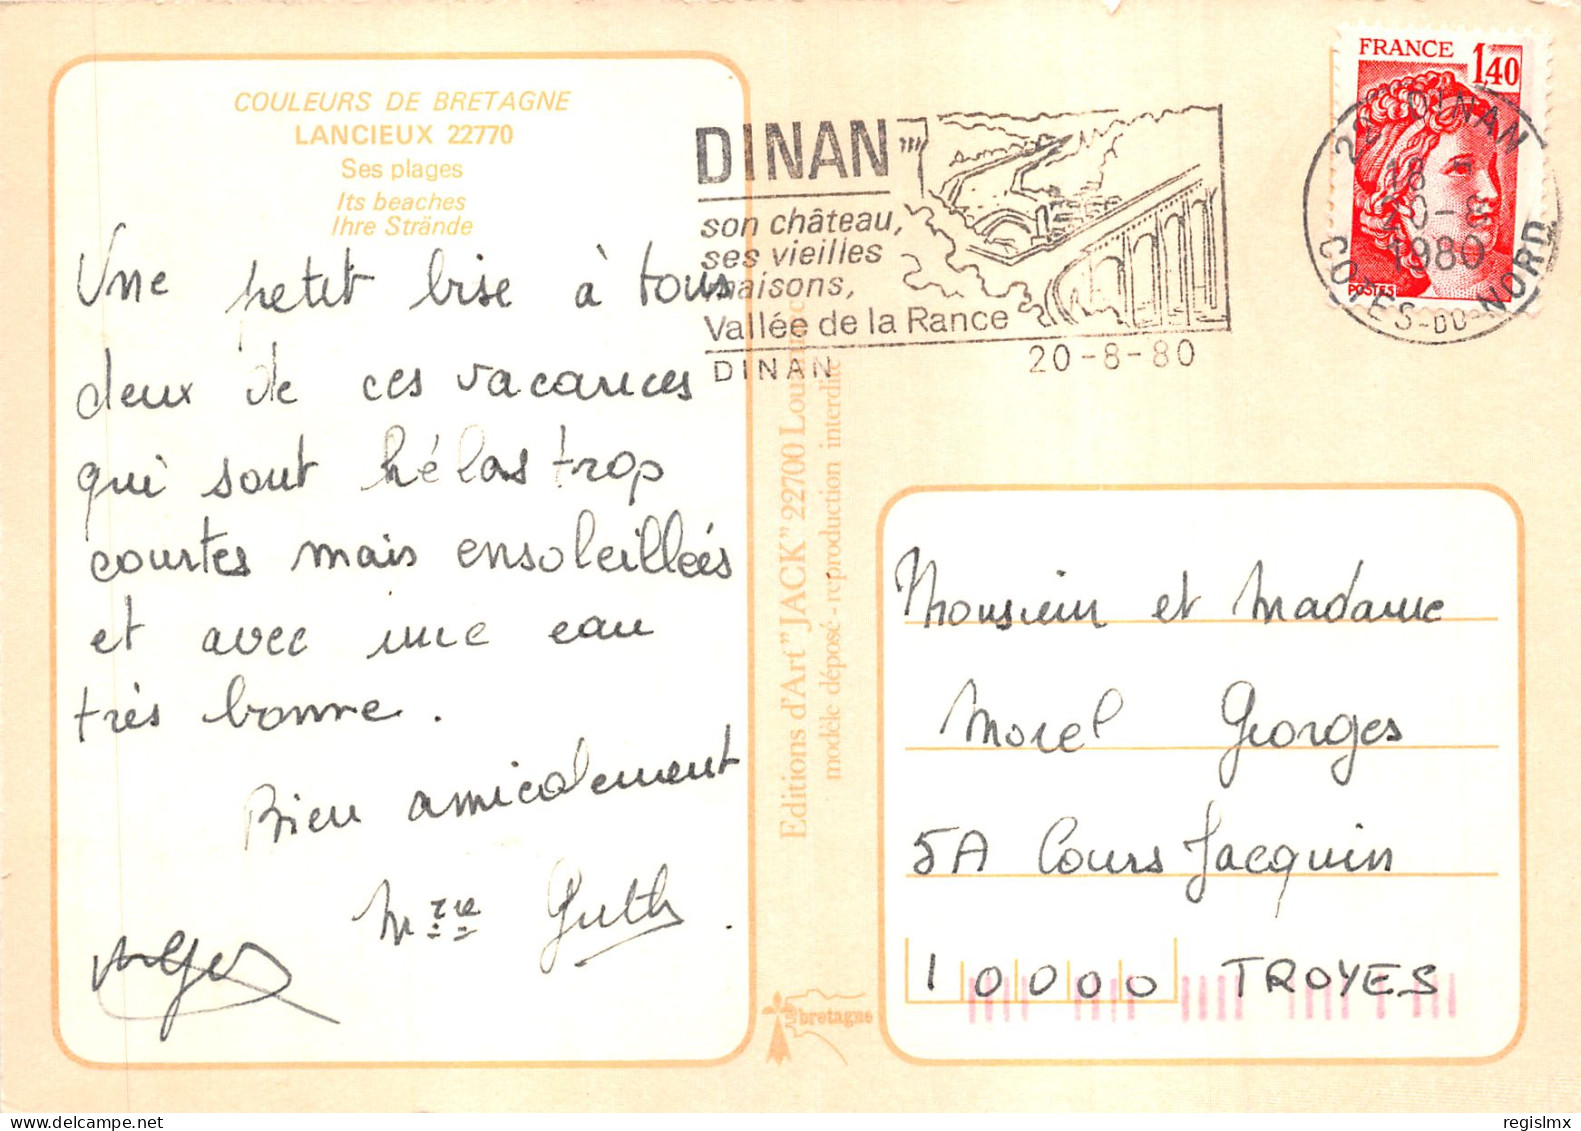 COULEURS DE BRETAGNE
LANCIEUX 22770
Ses plages
Its beaches
Ihre Strände
Une petit bise à tous
deux de ces vacances
qui sont hélas trop
courtes mais ensoleillées
et avec une eau
très bonne.
Bien amicalement
DINAN
son château,
ses vieilles
maisons,
Vallée de la Rance
DINAN 20-8-80
FRANCE 1,40
POSTES
22 DINAN
18
20-8
1980
COTES-DU-NORD
Editions d'Art "JACK" 22700 Louannec
modèle déposé - reproduction interdite
bretagne
Monsieur et Madame
Morel Georges
5A Cours Jacquin
10000 TROYES
regislmx